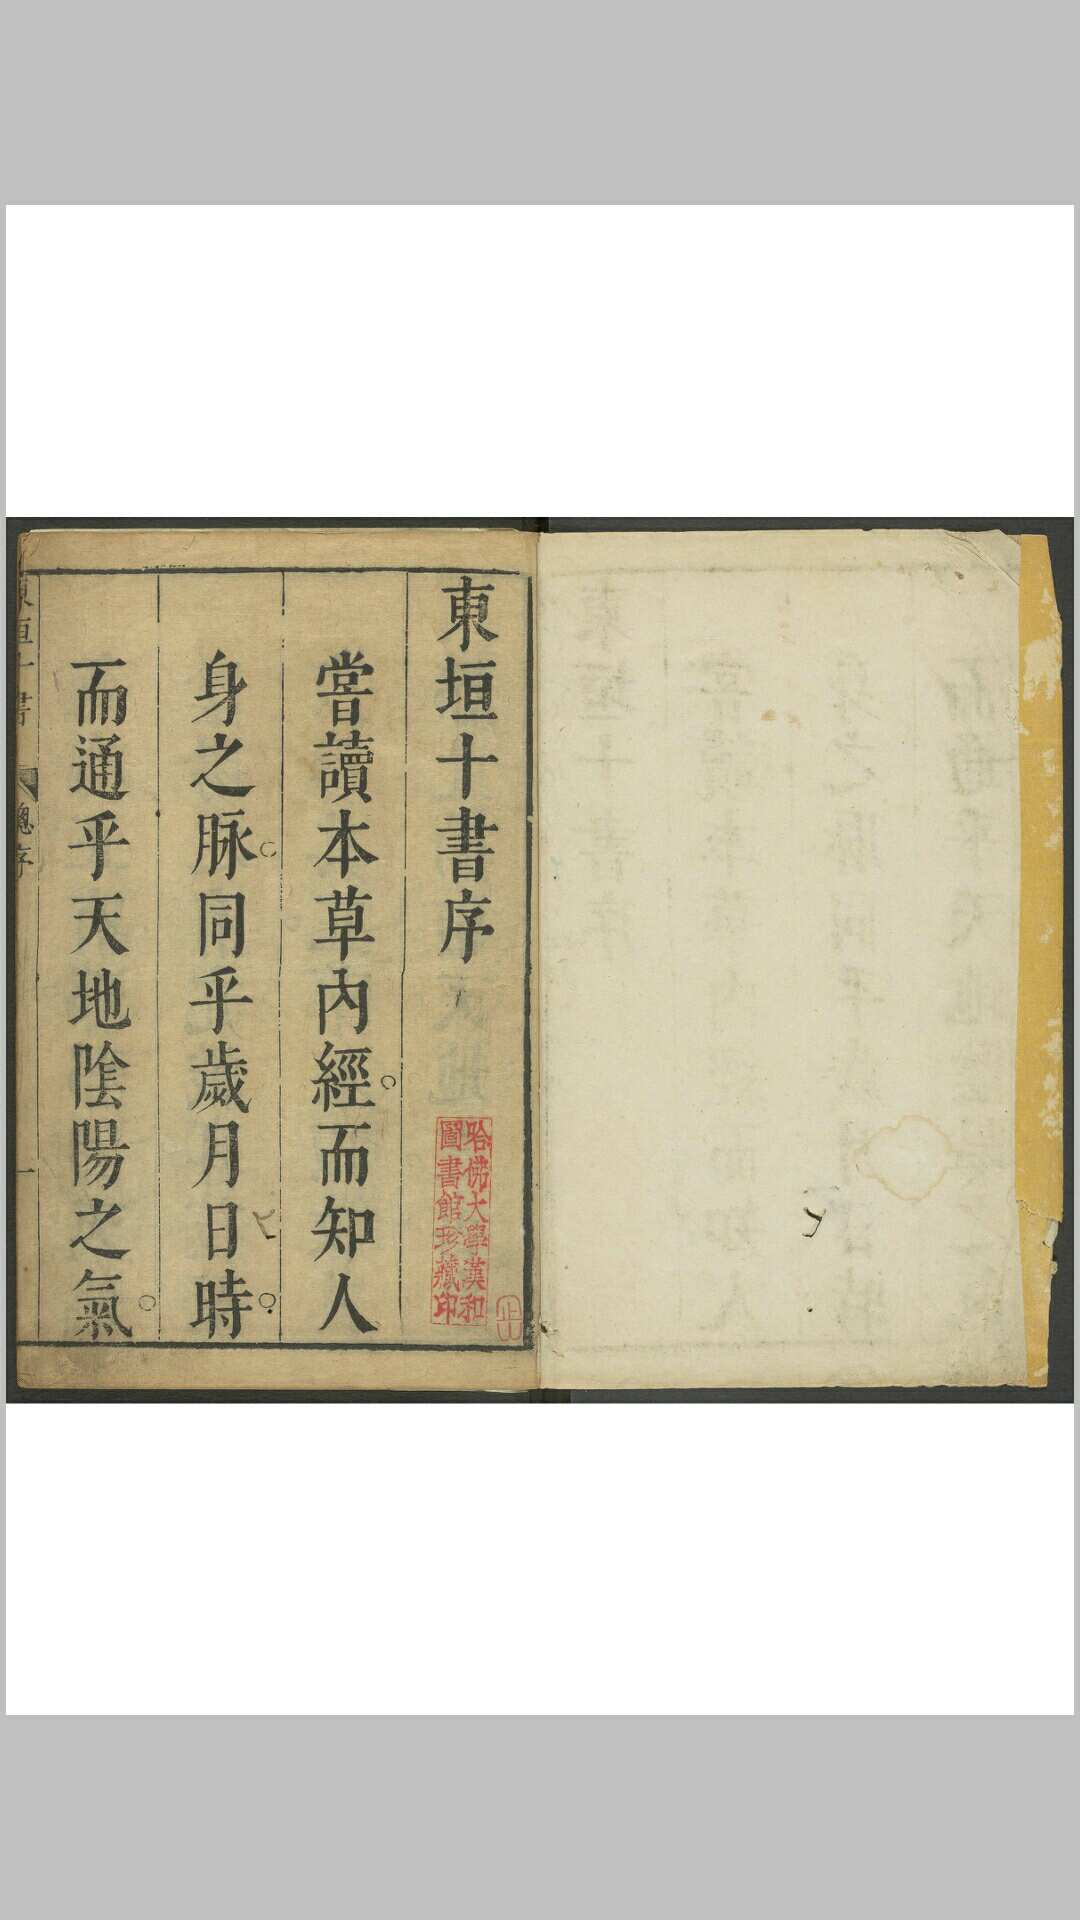 東垣十書序
嘗讀本草內經而知人
身之脉同乎歲月日時
而通乎天地隂陽之氣
哈佛大學漢和
圖書館珍藏印
東垣十書
總序
一